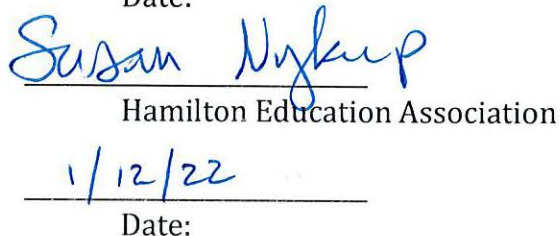 Date:
Susan
Hamilton Education Association
1/12/22
Date: